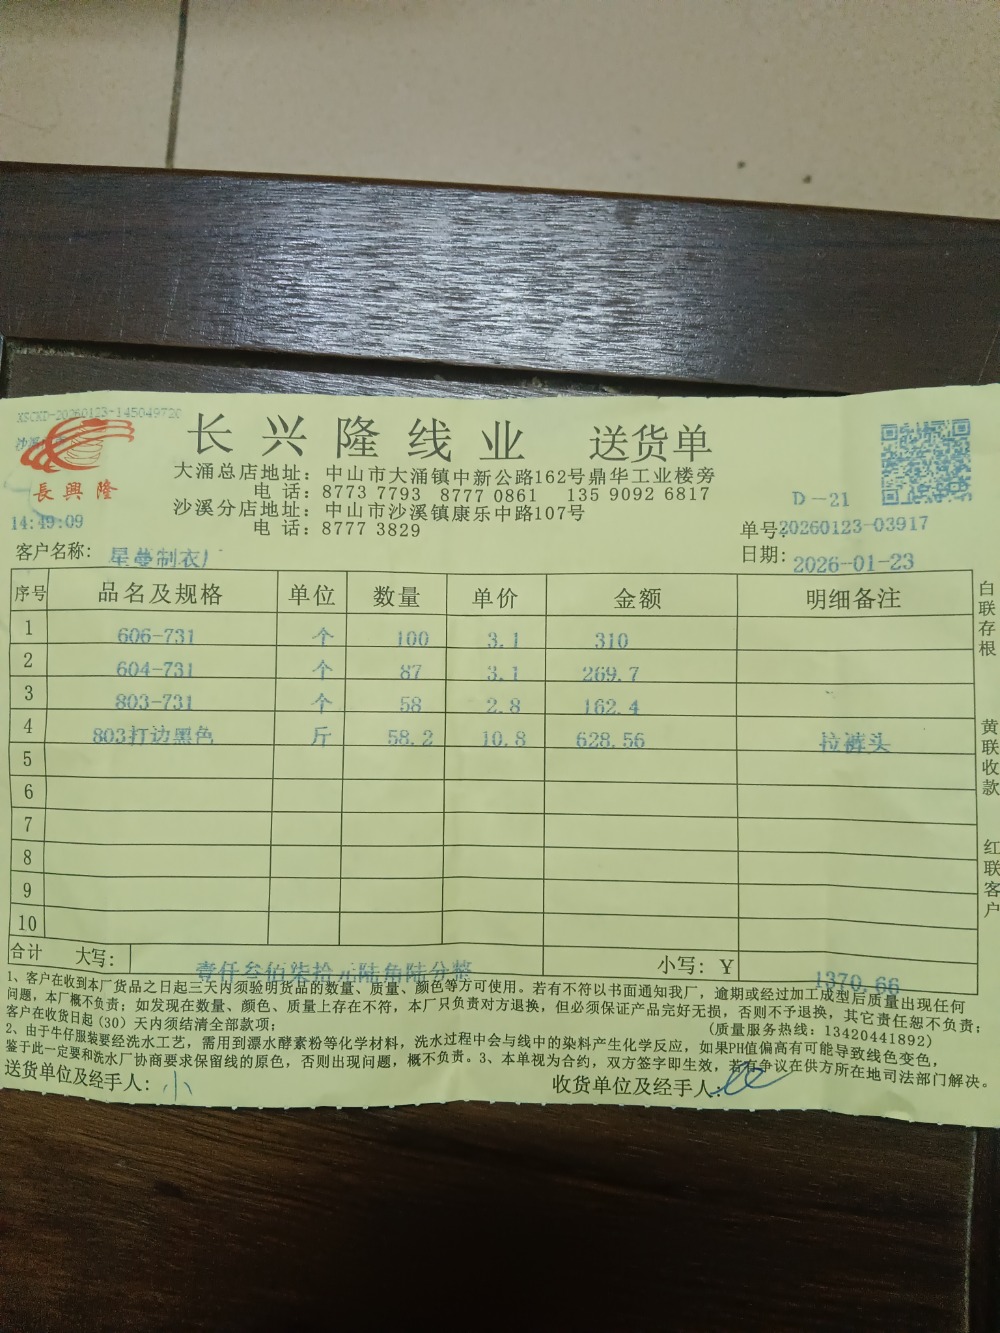 XSCKD-20260123-14504972C
長興隆
14:49:09
长兴隆线业 送货单
大涌总店地址：中山市大涌镇中新公路162号鼎华工业楼旁
电 话：8773 7793 8777 0861 135 9092 6817
沙溪分店地址：中山市沙溪镇康乐中路107号
电 话：8777 3829
D-21
单号:20260123-03917
客户名称: 星蔓制衣厂
日期: 2026-01-23
序号 品名及规格 单位 数量 单价 金额 明细备注
1 606-731 个 100 3.1 310
2 604-731 个 87 3.1 269.7
3 803-731 个 58 2.8 162.4
4 803打边黑色 斤 58.2 10.8 628.56 拉裤头
5
6
7
8
9
10
合计 大写: 壹仟叁佰柒拾元陆角陆分整 小写: Y 1370.66
白联存根
黄联收款
红联客户
1、客户在收到本厂货品之日起三天内须验明货品的数量、质量、颜色等方可使用。若有不符以书面通知我厂，逾期或经过加工成型后质量出现任何
问题，本厂概不负责；如发现在数量、颜色、质量上存在不符，本厂只负责对方退换，但必须保证产品完好无损，否则不予退换，其它责任恕不负责；
客户在收货日起（30）天内须结清全部款项； （质量服务热线：13420441892）
2、由于牛仔服装要经洗水工艺，需用到漂水酵素粉等化学材料，洗水过程中会与线中的染料产生化学反应，如果PH值偏高有可能导致线色变色，
鉴于此一定要和洗水厂协商要求保留线的原色，否则出现问题，概不负责。3、本单视为合约，双方签字即生效，若有争议在供方所在地司法部门解决。
送货单位及经手人: 小
收货单位及经手人: